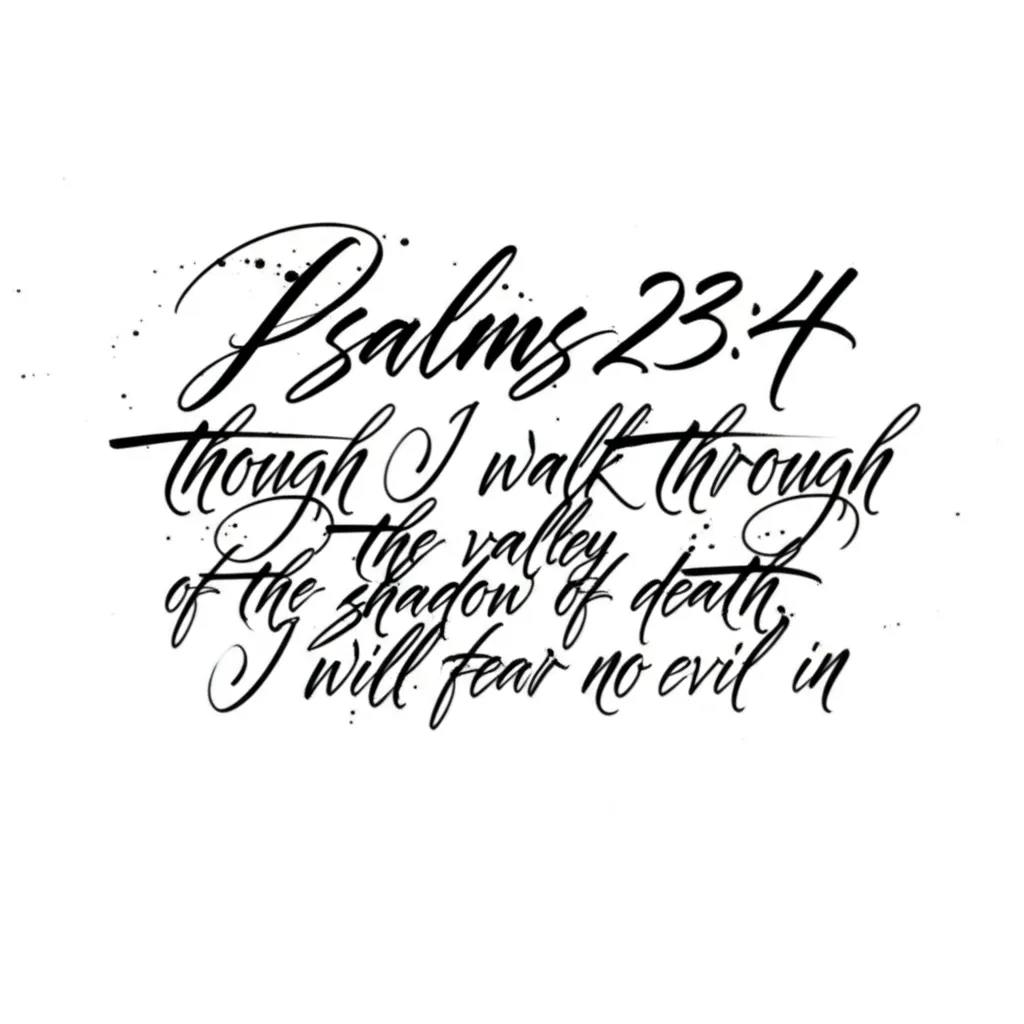 Psalms 23:4
though I walk through
the valley
of the shadow of death,
I will fear no evil in